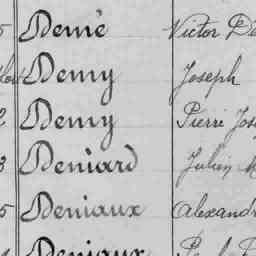 5 Demé Victor
Demy Joseph
2 Demy Pierre
3 Deniard Julien
5 Deniaux Alexand
Deniaux